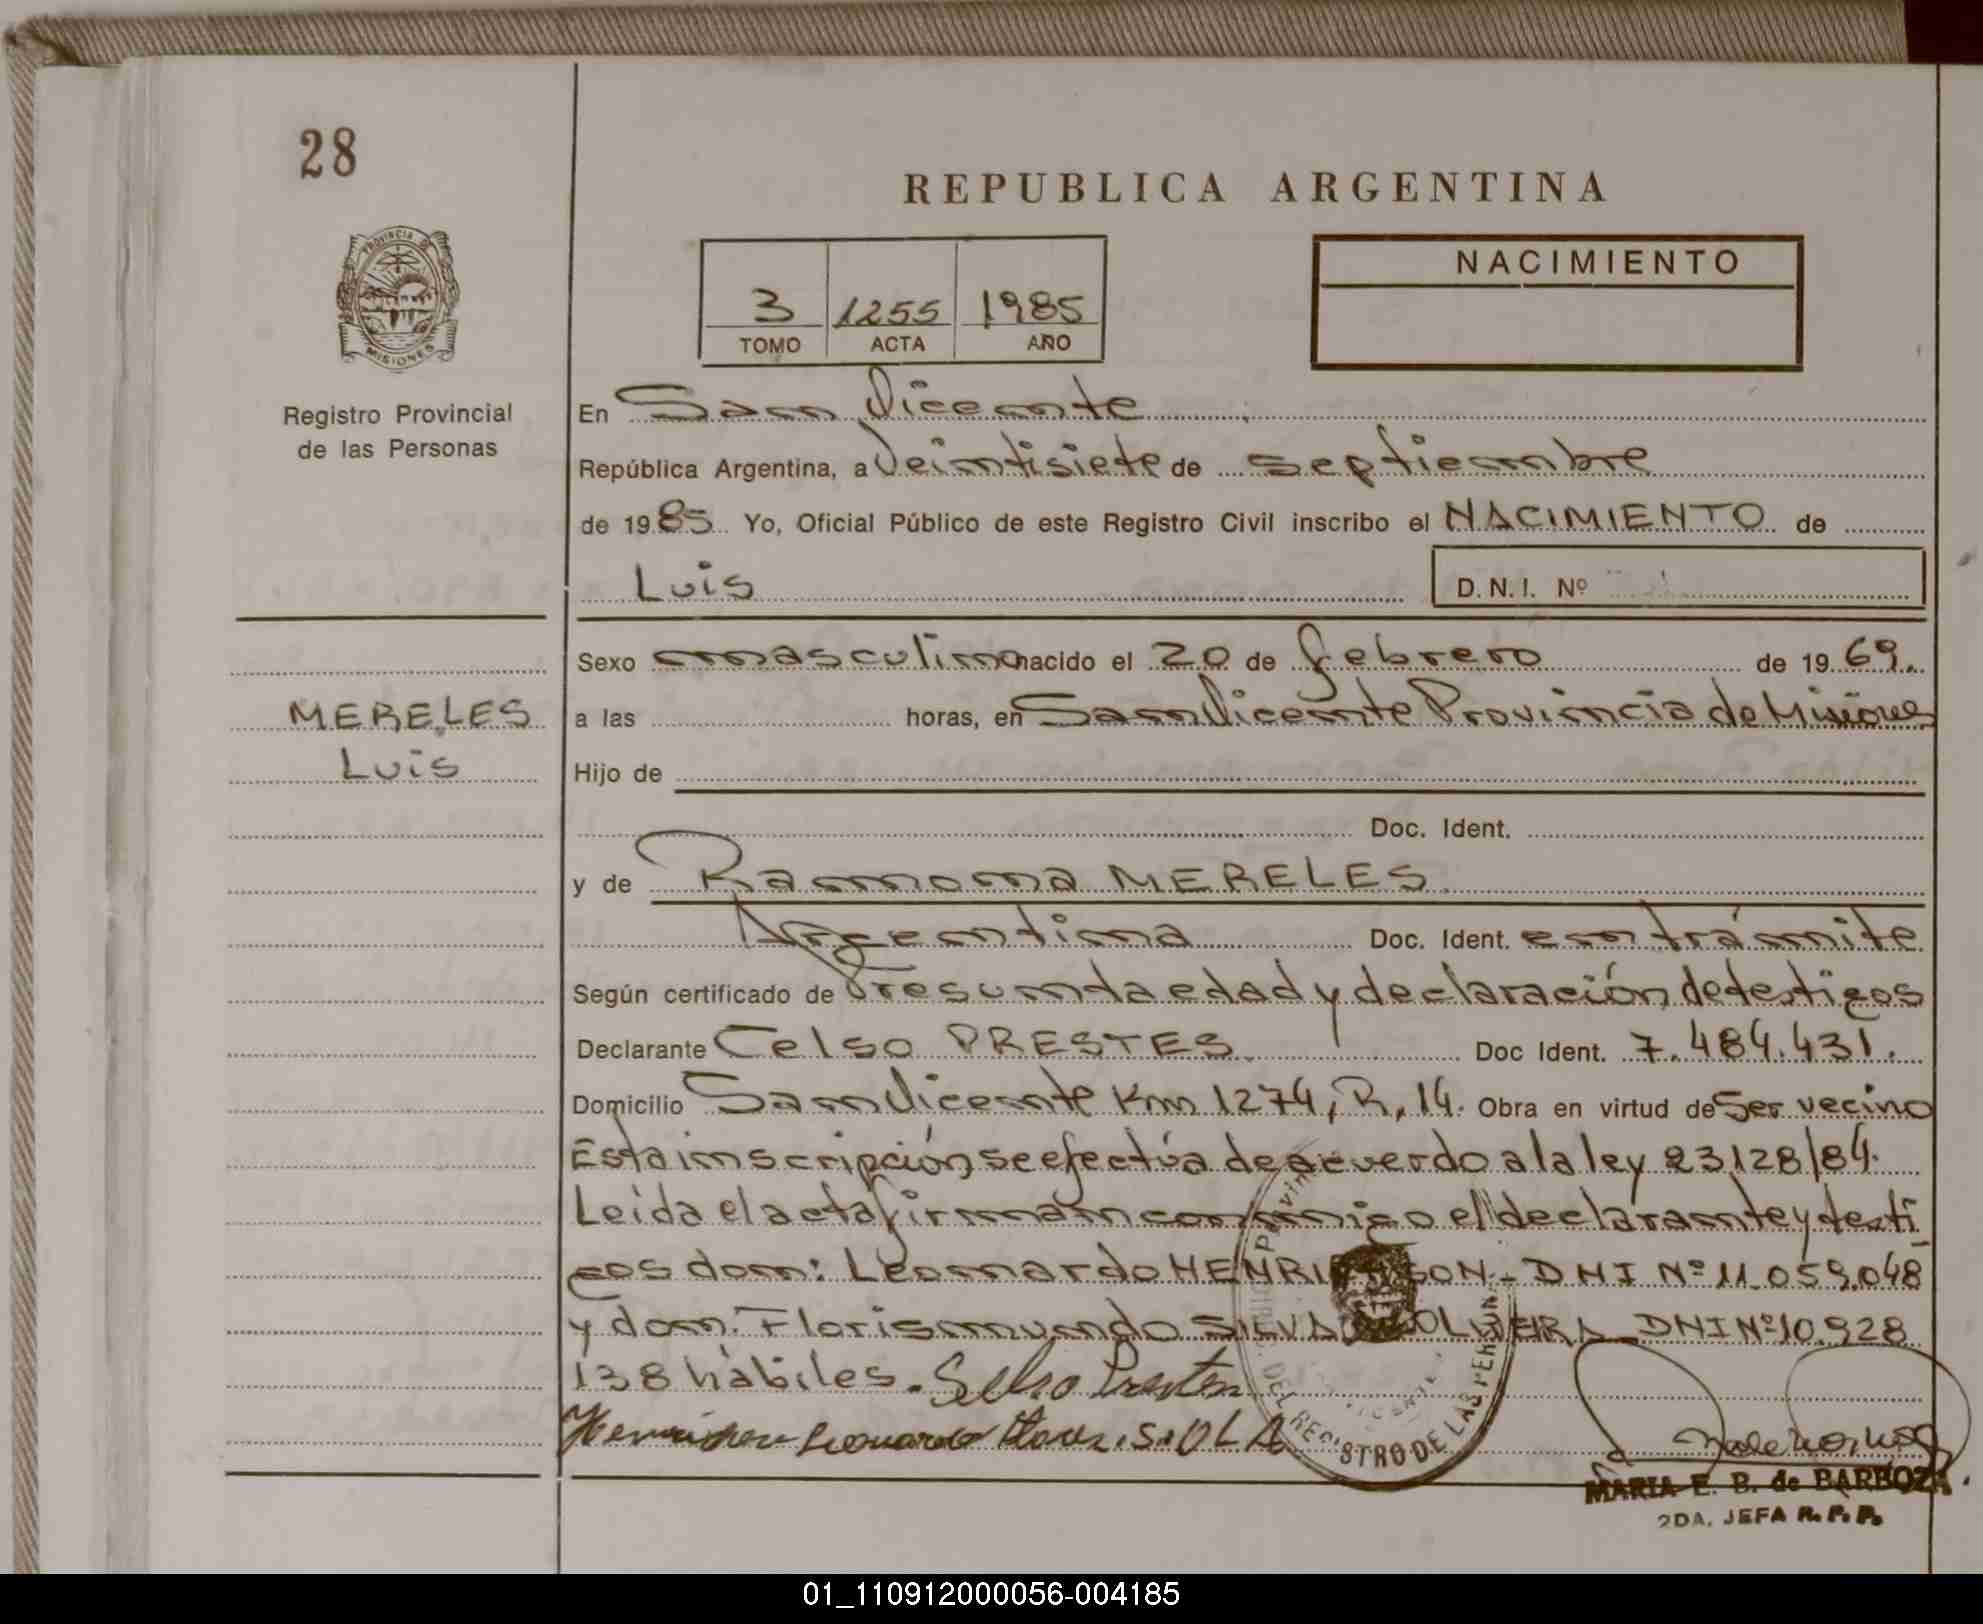 28
REPUBLICA ARGENTINA
PROVINCIA DE
MISIONES
Registro Provincial
de las Personas
3 1255 1985
TOMO ACTA AÑO
NACIMIENTO
En San Vicente
República Argentina, a Veintisiete de septiembre
de 1985 Yo, Oficial Público de este Registro Civil inscribo el NACIMIENTO de
Luis D.N.I. Nº
Sexo masculino nacido el 20 de febrero de 1969.
MERELES
Luis
a las horas, en San Vicente Provincia de Misiones
Hijo de
Doc. Ident.
y de Ramona MERELES
Argentina Doc. Ident. en trámite
Según certificado de Presunta edad y declaración de testigos
Declarante Celso PRESTES Doc Ident. 7.484.431.
Domicilio San Vicente Km 1274, R, 14. Obra en virtud de Ser vecino
Esta inscripción se efectúa de acuerdo a la ley 23128/84.
Leída el acta firman conmigo el declarante y testi
gos don: Leonardo DNI Nº 11.059.048
y don: Florismundo SILVA DNI Nº 10.928
138 hábiles. Selso Prestes
Leonardo
DEL REGISTRO DE LAS PERSONAS
MARIA E. B. de BARBOZA
2DA. JEFA R. P. P.
01_110912000056-004185